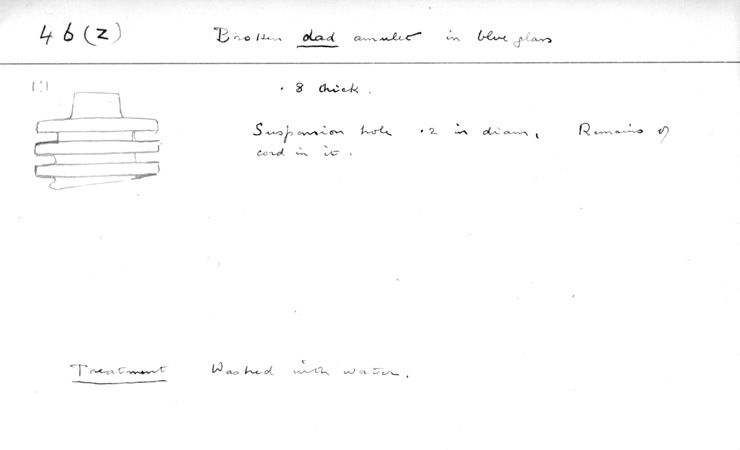 46(z) Broken dad amulet in blue glass
[1:1]
.8 thick.
Suspension hole .2 in diam, Remains of
cord in it.
Treatment Washed with water.